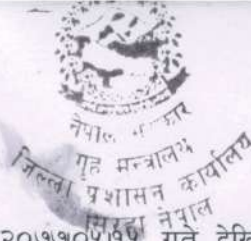 नेपाल सरकार
गृह मन्त्रालय
जिल्ला प्रशासन कार्यालय
सिरहा नेपाल
गते देखि